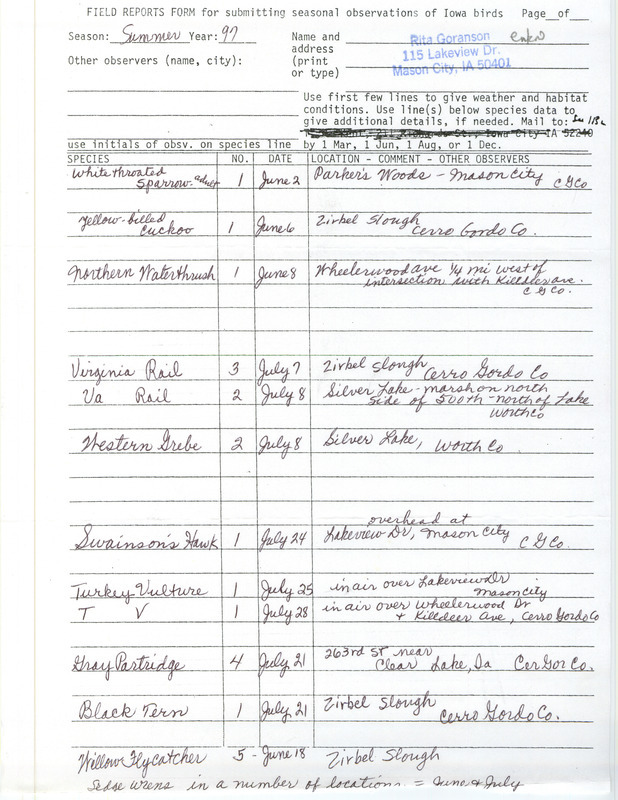 FIELD REPORTS FORM for submitting seasonal observations of Iowa birds Page__of___
Season: Summer Year: 97
Other observers (name, city):
Name and
address
(print
or type)
Rita Goranson
115 Lakeview Dr.
Mason City, IA 50401
Use first few lines to give weather and habitat
conditions. Use line(s) below species data to
give additional details, if needed. Mail to:
Iowa City IA 52240
use initials of obsv. on species line by 1 Mar, 1 Jun, 1 Aug, or 1 Dec.
SPECIES NO. DATE LOCATION - COMMENT - OTHER OBSERVERS
White throated
Sparrow-adult 1 June 2 Parker's Woods - Mason City C G Co
Yellow-billed
Cuckoo 1 June 6 Zirbel Slough
Cerro Gordo Co.
Northern Waterthrush 1 June 8 Wheelerwood ave 1/4 mi west of
intersection with Killdeer ave.
C G Co.
Virginia Rail 3 July 7 Zirbel Slough Cerro Gordo Co
Va Rail 2 July 8 Silver Lake - marsh on north
side of 500th - north of Lake
Worth Co
Western Grebe 2 July 8 Silver Lake, Worth Co
Swainson's Hawk 1 July 24 overhead at
Lakeview Dr, Mason City C G Co.
Turkey Vulture 1 July 25 in air over Lakeview Dr
Mason City
T V 1 July 28 in air over Wheelerwood Dr
+ Killdeer Ave, Cerro Gordo Co
Gray Partridge 4 July 21 263rd St near
Clear Lake, Ia Cer Gor Co.
Black Tern 1 July 21 Zirbel Slough
Cerro Gordo Co.
Willow Flycatcher 5 - June 18 Zirbel Slough
Sedge wrens in a number of locations = June & July